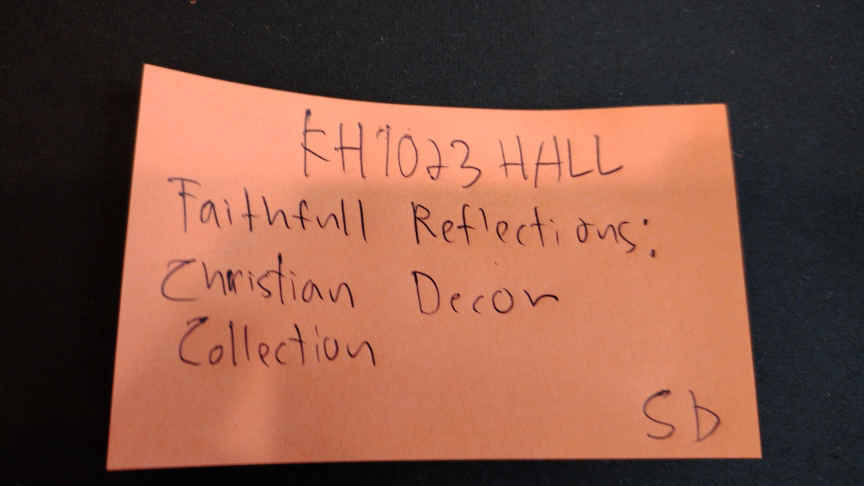 KH1023 HALL
Faithfull Reflections:
Christian Decor
Collection
Sb